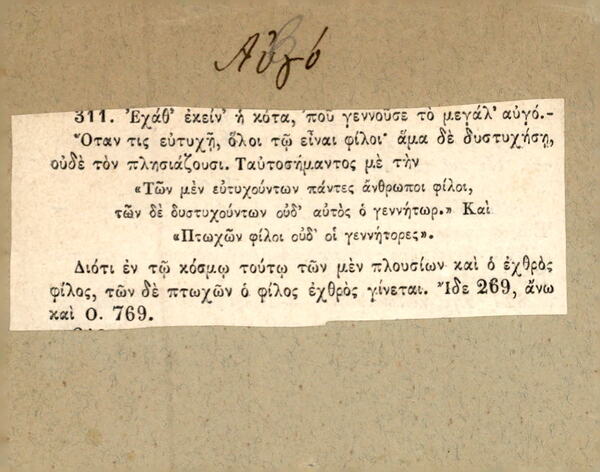 Αὐγό
311. Ἐχάθ' ἐκείν' ἡ κότα, ποῦ γεννοῦσε τὸ μεγάλ' αὐγό.-
Ὅταν τις εὐτυχῇ, ὅλοι τῷ εἶναι φίλοι· ἅμα δὲ δυστυχήσῃ,
οὐδὲ τὸν πλησιάζουσι. Ταὐτοσήμαντος μὲ τὴν
«Τῶν μὲν εὐτυχούντων πάντες ἄνθρωποι φίλοι,
τῶν δὲ δυστυχούντων οὐδ' αὐτὸς ὁ γεννήτωρ.» Καὶ
«Πτωχῶν φίλοι οὐδ' οἱ γεννήτορες».
Διότι ἐν τῷ κόσμῳ τούτῳ τῶν μὲν πλουσίων καὶ ὁ ἐχθρὸς
φίλος, τῶν δὲ πτωχῶν ὁ φίλος ἐχθρὸς γίνεται. Ἴδε 269, ἄνω
καὶ Ο. 769.